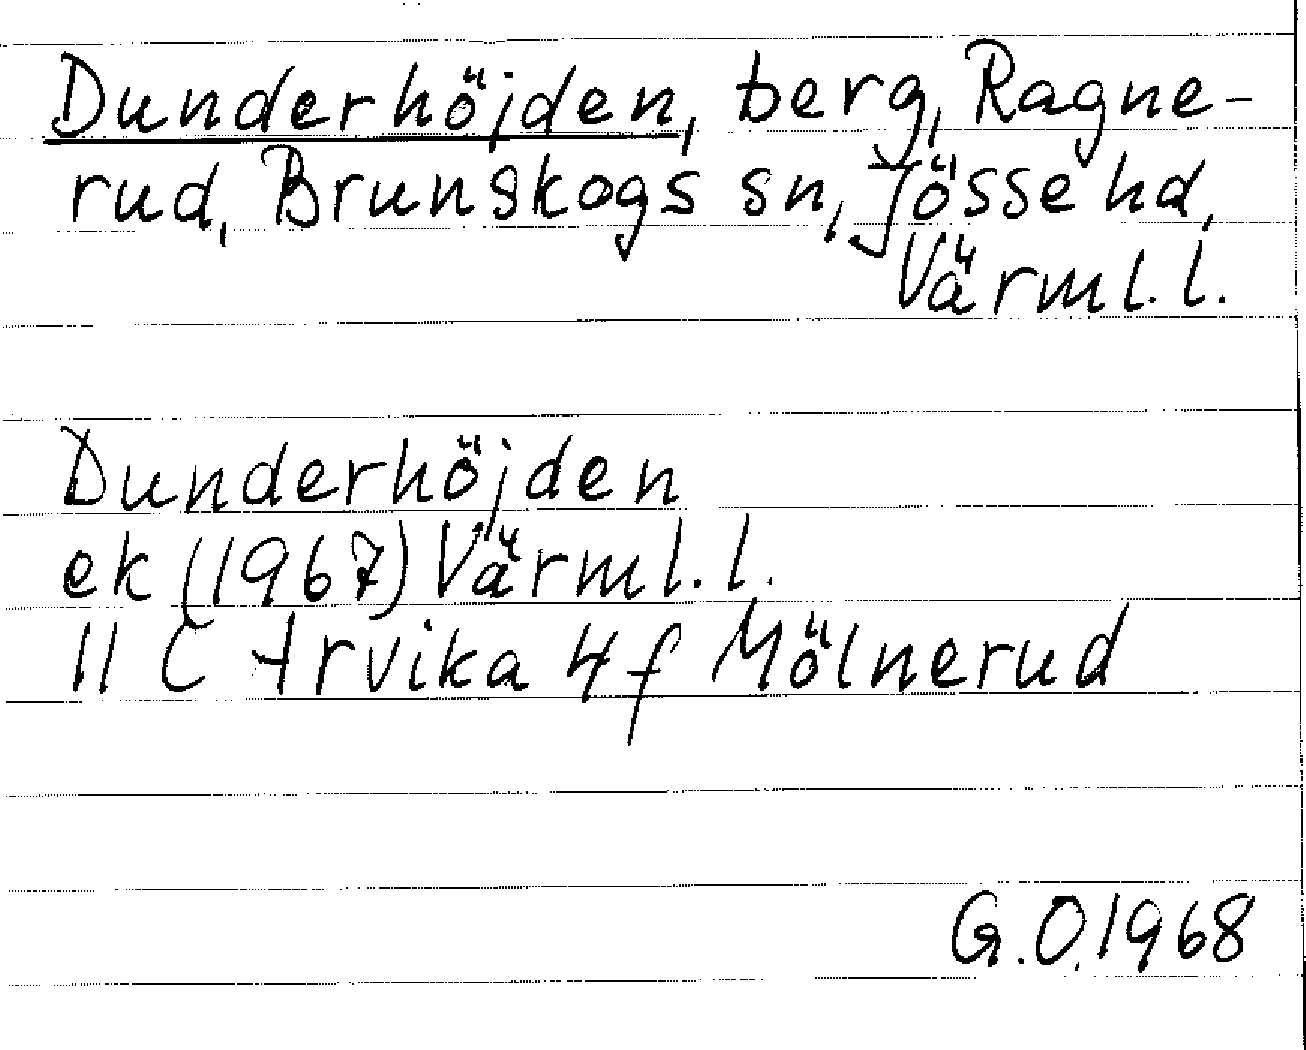 Dunderhöjden, berg, Ragne-
rud, Brunskogs sn, Jösse hd,
Värml. l.
Dunderhöjden
ek (1967) Värml. l.
11 C Arvika 4f Mölnerud
G.O. 1968